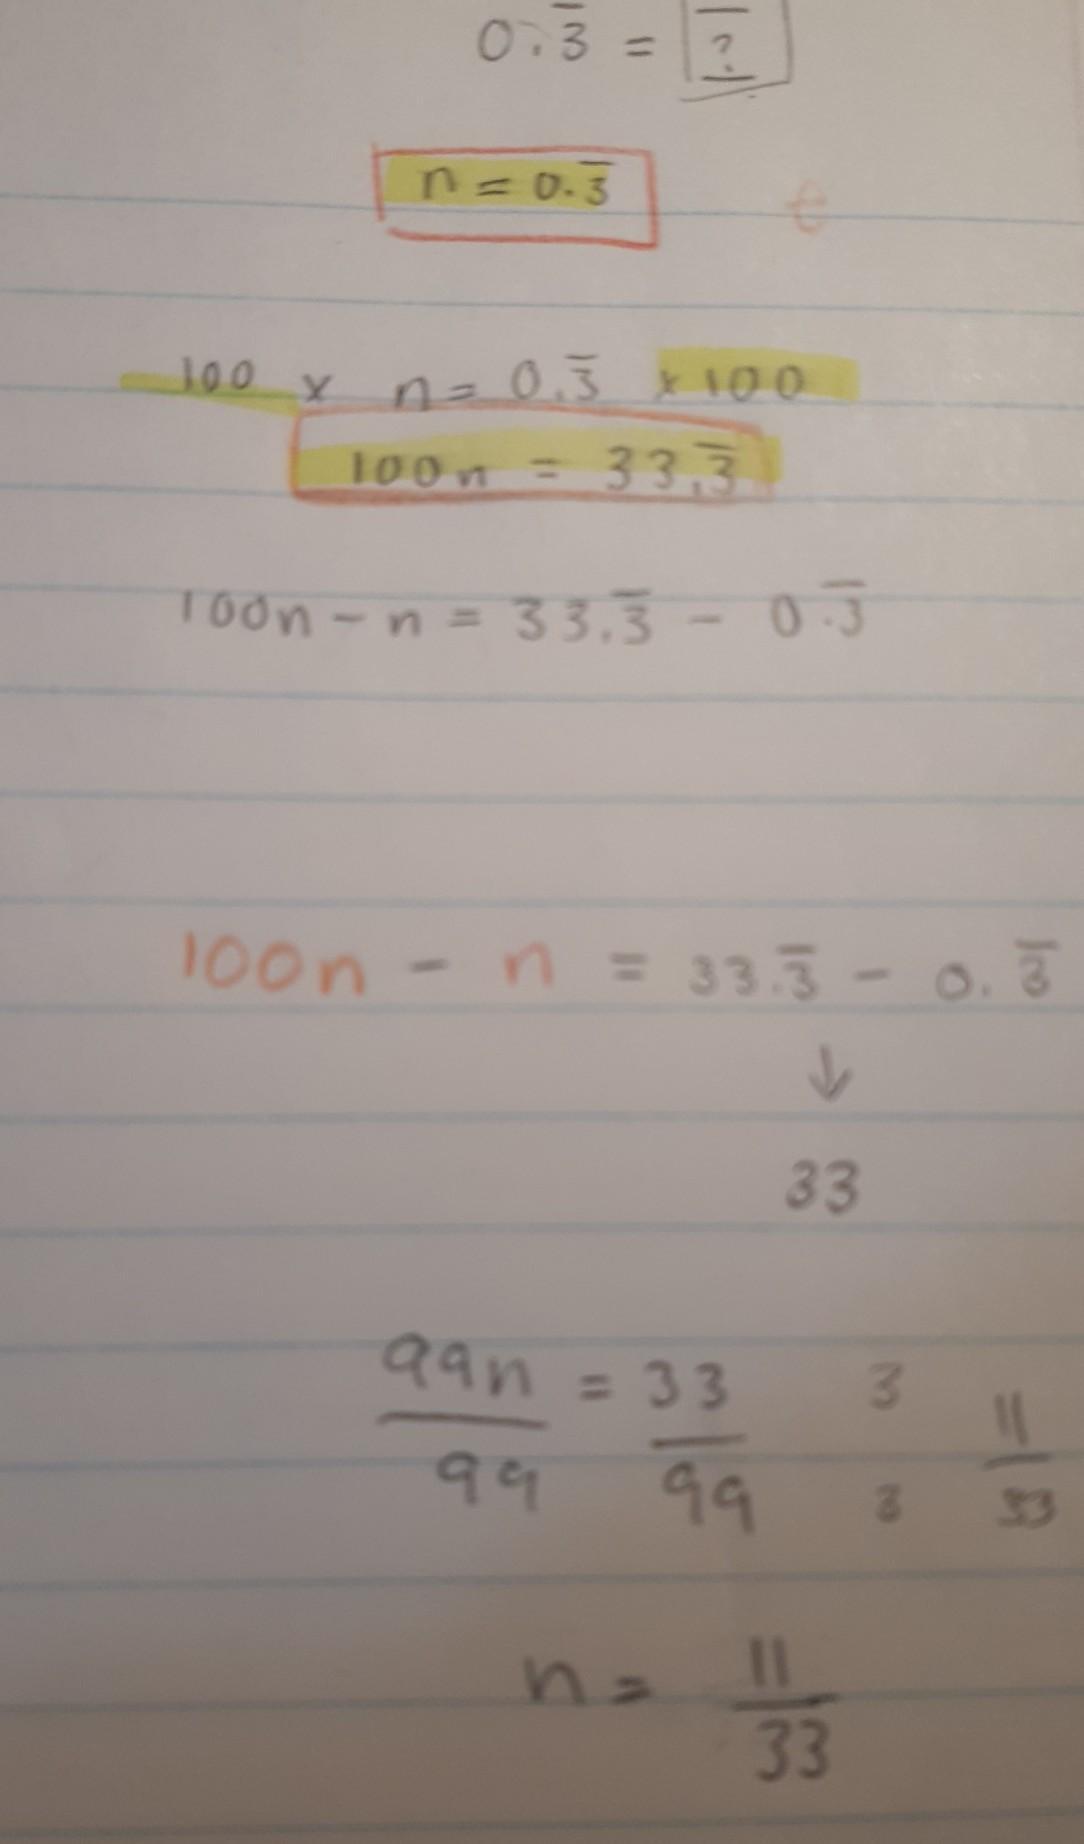 0.3̅ = ?
n = 0.3̅
100 x n = 0.3̅ x 100
100n = 33.3̅
100n - n = 33.3̅ - 0.3̅
100n - n = 33.3̅ - 0.3̅
↓
33
99n/99 = 33/99 3/3 11/33
n = 11/33